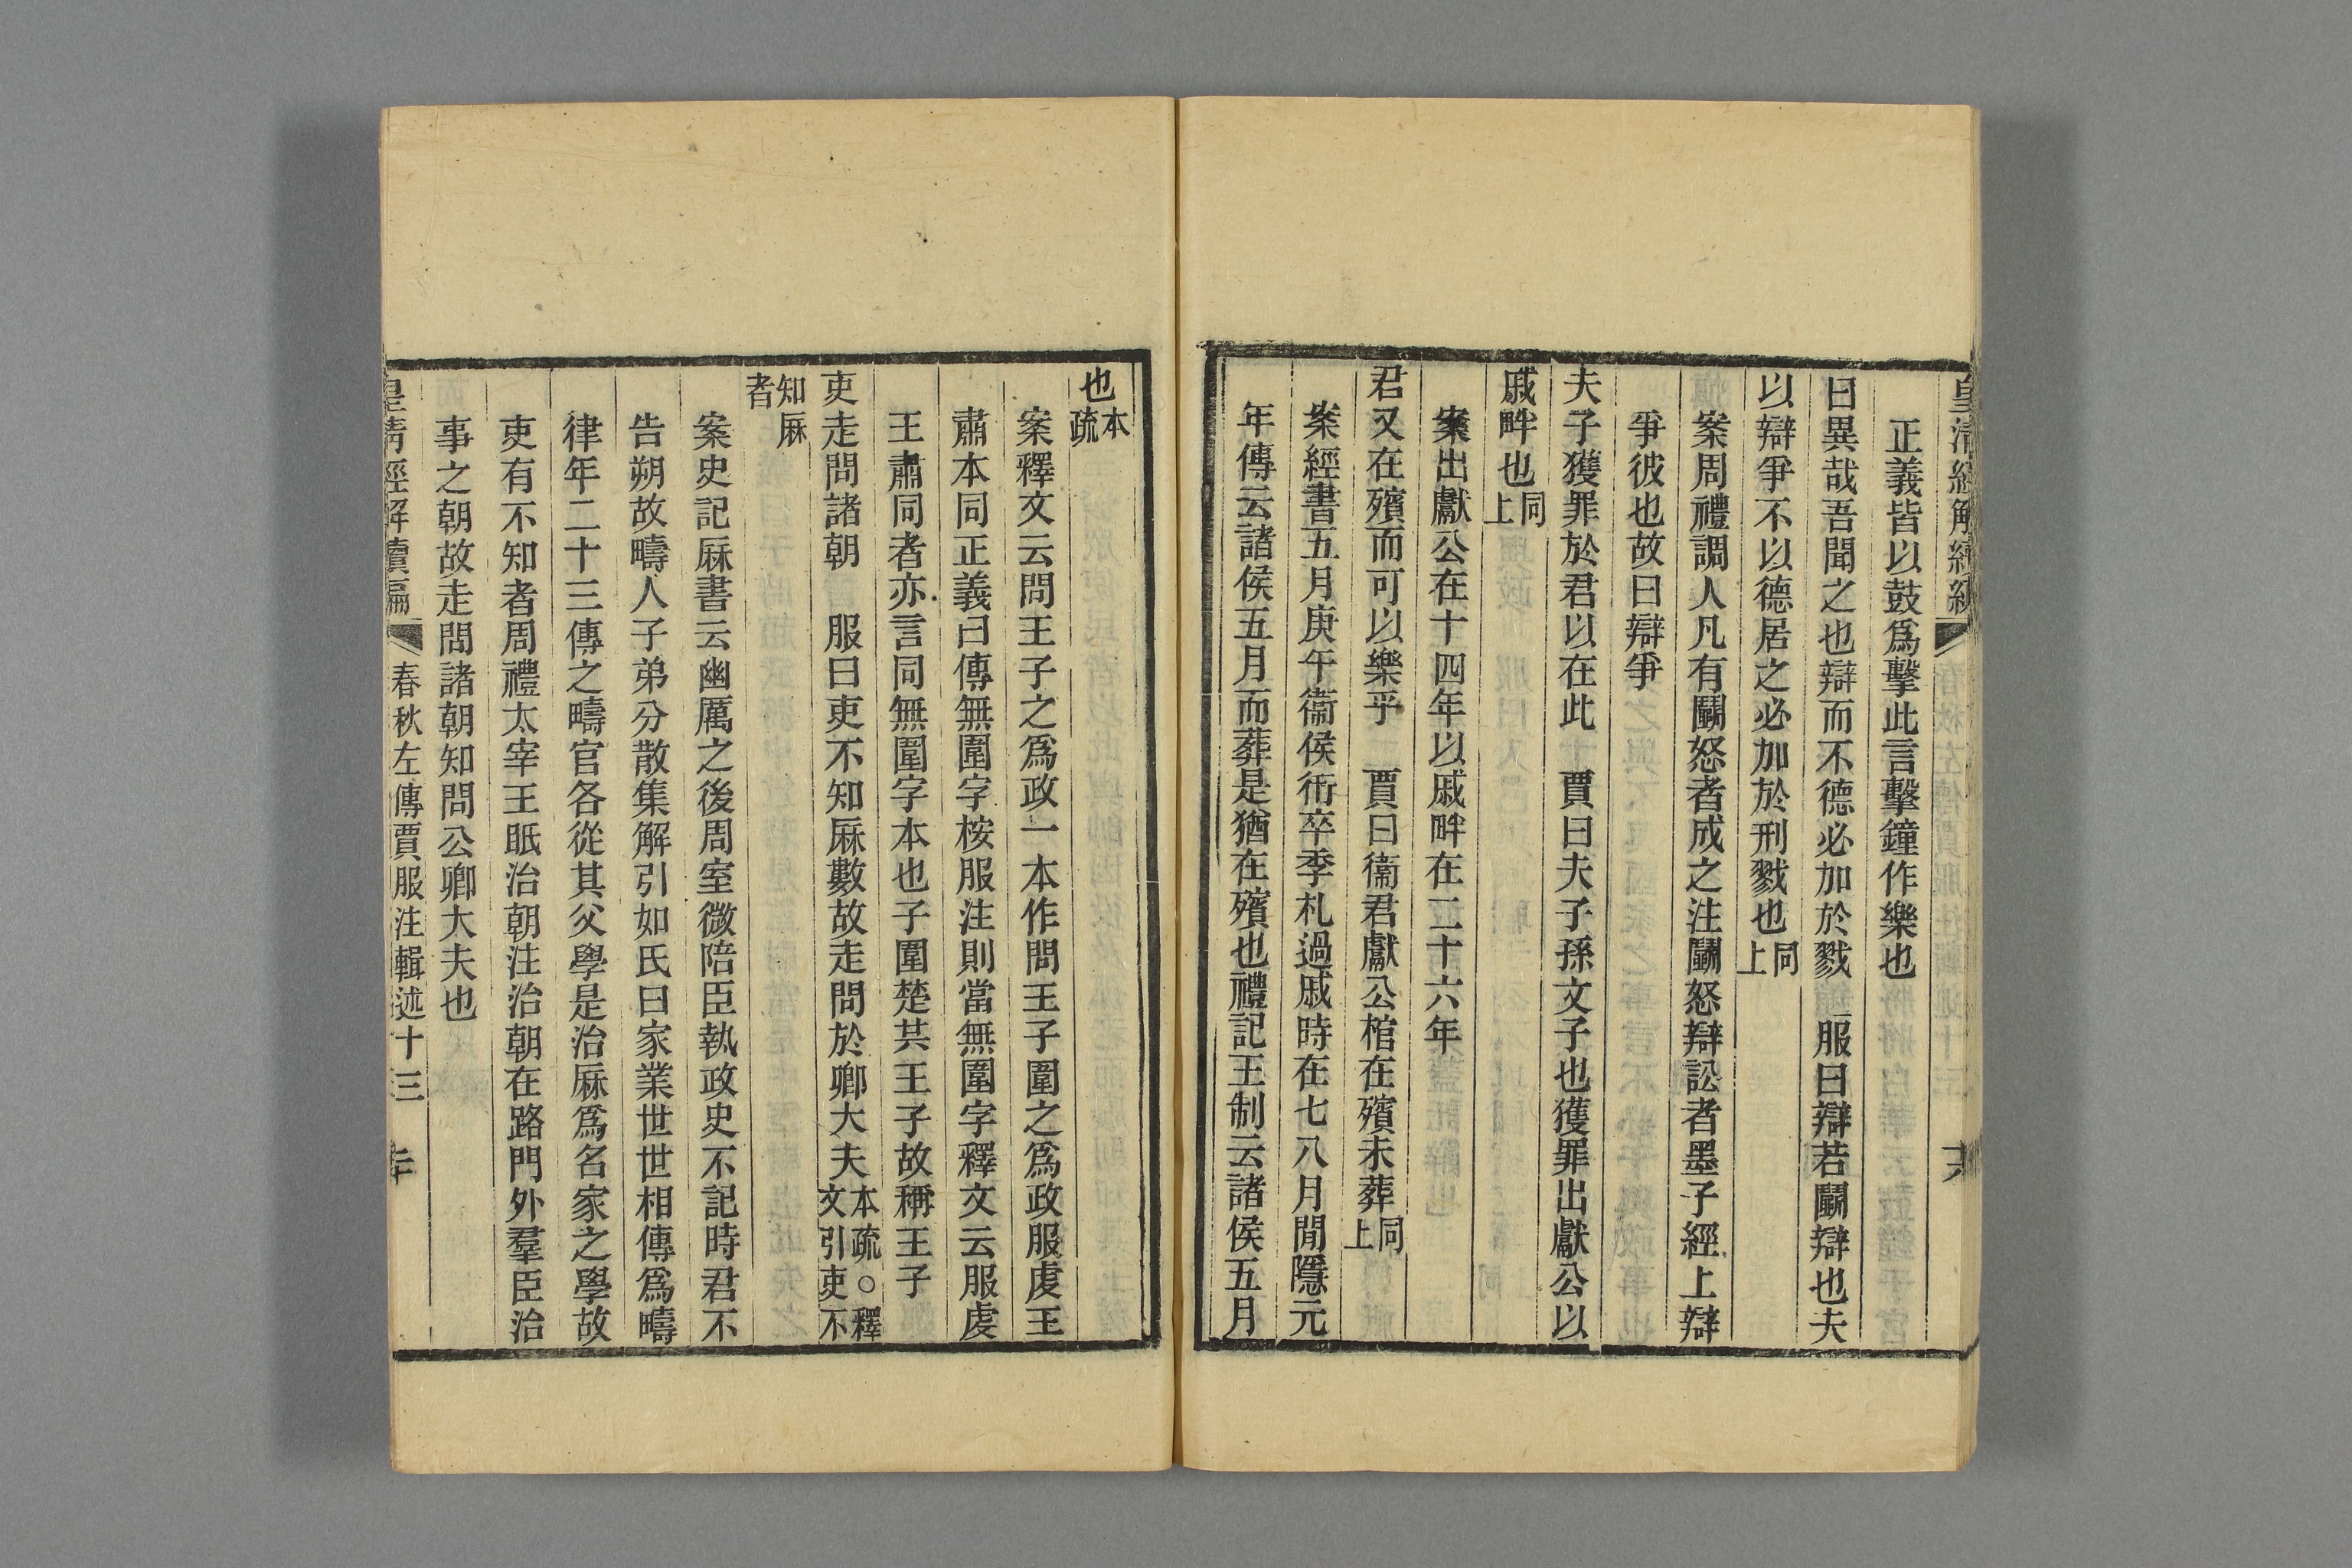 皇清經解續編
正義皆以鼓爲擊此言擊鐘作樂也
曰異哉吾聞之也辯而不德必加於戮　服曰辯若鬭辯也夫
以辯爭不以德居之必加於刑戮也同上
案周禮調人凡有鬭怒者成之注鬭怒辯訟者墨子經上辯
爭彼也故曰辯爭
夫子獲罪於君以在此　賈曰夫子孫文子也獲罪出獻公以
戚畔也同上
案出獻公在十四年以戚畔在二十六年
君又在殯而可以樂乎　賈曰衞君獻公棺在殯未葬同上
案經書五月庚午衞侯衎卒季札過戚時在七八月閒隱元
年傳云諸侯五月而葬是猶在殯也禮記王制云諸侯五月
也本疏
案釋文云問王子之爲政一本作問王子圍之爲政服虔王
肅本同正義曰傳無圍字桉服注則當無圍字釋文云服虔
王肅同者亦言同無圍字本也子圍楚共王子故稱王子
吏走問諸朝　服曰吏不知厤數故走問於卿大夫本疏○釋文引吏不
知厤者
案史記厤書云幽厲之後周室微陪臣執政史不記時君不
告朔故疇人子弟分散集解引如氏曰家業世世相傳爲疇
律年二十三傳之疇官各從其父學是治厤爲名家之學故
吏有不知者周禮太宰王眡治朝注治朝在路門外羣臣治
事之朝故走問諸朝知問公卿大夫也
皇清經解續編　春秋左傳賈服注輯述十三